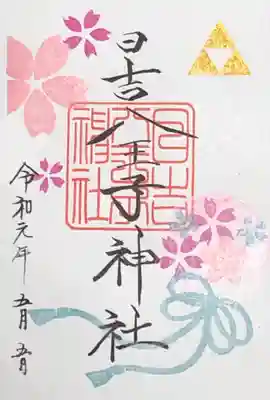 日吉八王子神社
日吉八王子神社
令和元年 五月 五日